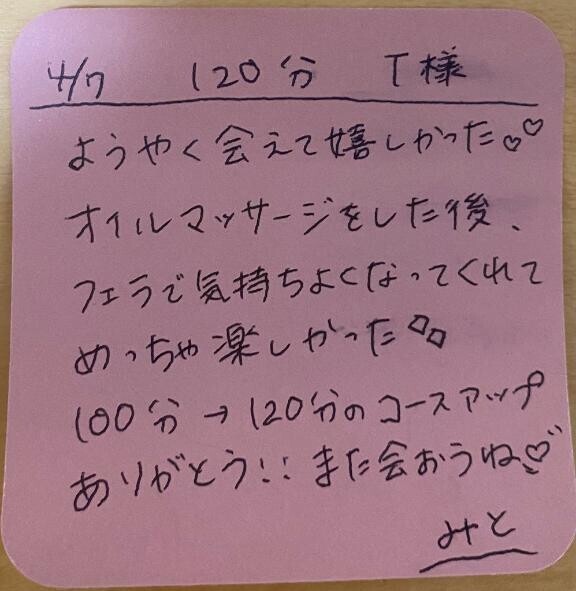 4/7 120分 T様
ようやく会えて嬉しかった♡♡
オイルマッサージをした後、
フェラで気持ちよくなってくれて
めっちゃ楽しかった
100分→120分のコースアップ
ありがとう!! また会おうね♡
みと